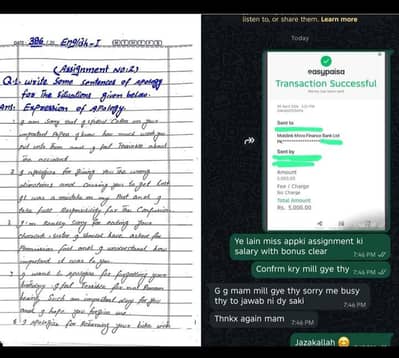 DATE: 386/20 English-I
(Assignment No:2)
Q:1 write Some Sentences of apology
for The Situations given below.
Ans: Expression of apology.
1 I am Sorry that I spilled on your
important Paper I know how much work you
put into Them and I feel Terrible about
The accident
2 I apologize for giving you The wrong
directions and Causing you to get lost
It was a mistake on my Part and I
take full Responsibility for The Confusion
I'm Really Sorry for eating your
I Should have asked for
Permission first and I understand how
important it was to you
I want to apologize for forgetting your
birthday I feel Terrible for not
Such an important day for you
and I hope you forgive me
I apologize for Returning your bike with
listen to, or share them. Learn more
Today
easypaisa
Transaction Successful
Sent to
Mobilink Microfinance Bank Ltd
Sent by
Amount
5,000.00
Fee / Charge
No Charge
Total Amount
Rs. 5,000.00
Ye lain miss appki assignment ki
salary with bonus clear
7:46 PM
Confrm kry mill gye thy
7:46 PM
G g mam mill gye thy sorry me busy
thy to jawab ni dy saki
7:46 PM
Thnkx again mam
7:46 PM
Jazakallah